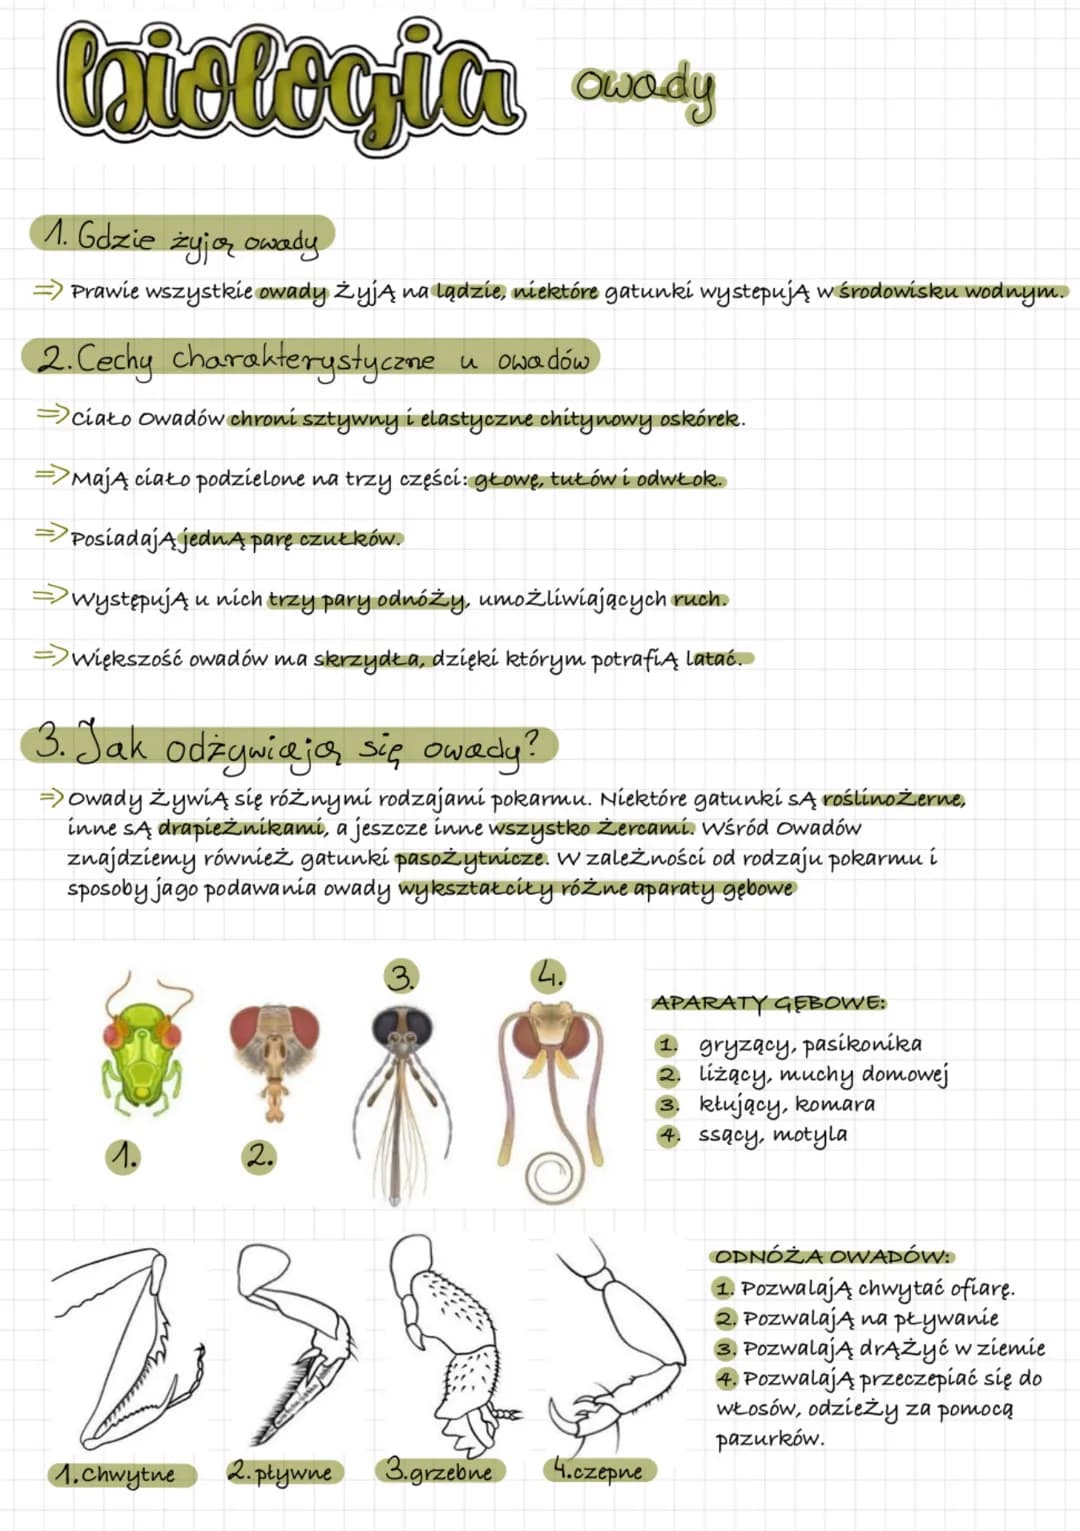 biologia
owady
1. Gdzie żyją owady
=> Prawie wszystkie owady ŻyjĄ na lądzie, niektóre gatunki wystepujĄ w środowisku wodnym.
2. Cechy charakterystyczne u owadów
=> Ciało Owadów chroni sztywny i elastyczne chitynowy oskórek.
=> MajĄ ciało podzielone na trzy części: głowę, tułów i odwłok.
=> PosiadajĄ jednĄ parę czułków.
=> WystępujĄ u nich trzy pary odnóŻy, umoŻliwiających ruch.
=> Większość owadów ma skrzydła, dzięki którym potrafiĄ latać.
3. Jak odżywiają się owady?
=> Owady ŻywiĄ się róŻnymi rodzajami pokarmu. Niektóre gatunki sĄ roślinoŻerne,
inne sĄ drapieŻnikami, a jeszcze inne wszystko Żercami. Wśród Owadów
znajdziemy równieŻ gatunki pasoŻytnicze. W zaleŻności od rodzaju pokarmu i
sposoby jago podawania owady wykształciły róŻne aparaty gębowe
3.
4.
1.
2.
APARATY GĘBOWE:
1. gryzący, pasikonika
2. liżący, muchy domowej
3. kłujący, komara
4. ssący, motyla
1. Chwytne
2. pływne
3. grzebne
4. czepne
ODNÓŻA OWADÓW:
1. PozwalajĄ chwytać ofiarę.
2. PozwalajĄ na pływanie
3. PozwalajĄ drĄŻyć w ziemie
4. PozwalajĄ przeczepiać się do
włosów, odzieŻy za pomocą
pazurków.